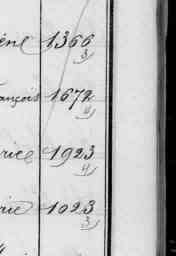 ène 1366
3
ançois 1672
4
rice 1923
4
rie 1023
3